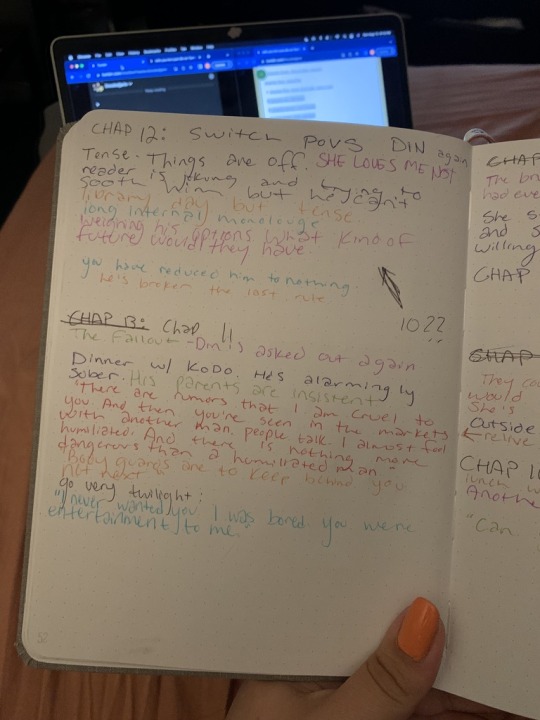 CHAP 12: Switch POVS DIN again
Tense. Things are off. SHE LOVES ME NOT
reader is and trying to
sooth him but he can't
library day but tense.
long internal monologue
weighing his options what kind of
future would they have.
you have reduced him to nothing.
he's broken the last rule
10??
CHAP 13: Chap 11
The Fallout - Din is asked out again
Dinner w/ KODO. He's alarmingly
sober. His parents are insistent
"There are rumors that I am cruel to
you. And then, you're seen in the markets
with another man. people talk. I almost feel
humiliated. And there is nothing more
dangerous than a humiliated man"
Body guards are to keep behind you
not next
go very twilight:
"I never wanted you. I was bored you were
entertainment to me."
52
CHAP
The
had eve
She s
and s
willing
CHAP
CHAP
They co
would
She's
Outside
relive
CHAP 1
lunch w
Anothe
"Can